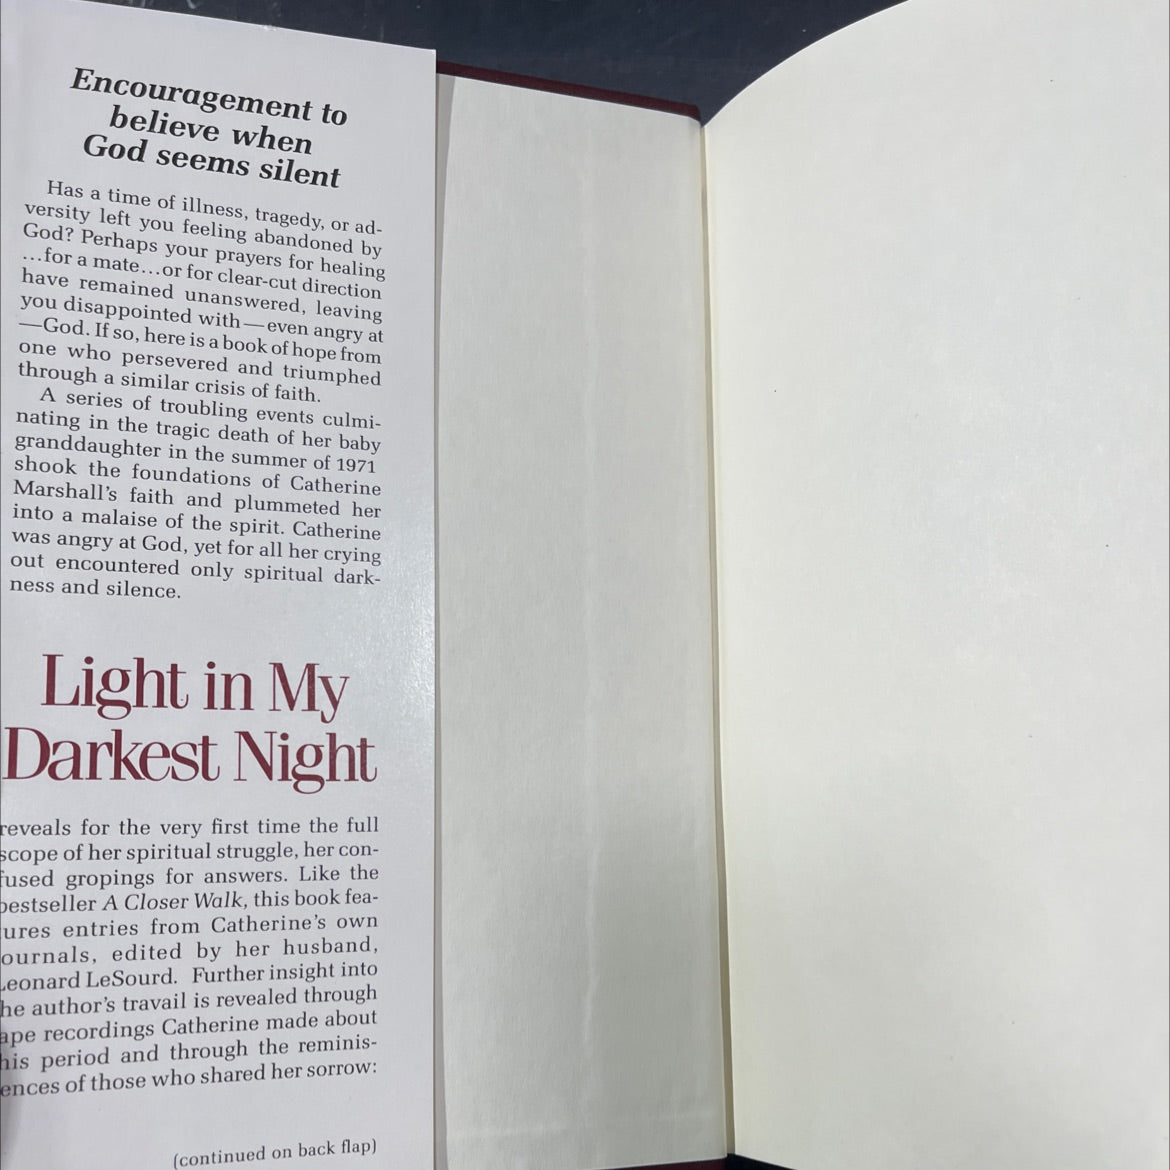 Encouragement to
believe when
God seems silent
Has a time of illness, tragedy, or ad-
versity left you feeling abandoned by
God? Perhaps your prayers for healing
...for a mate...or for clear-cut direction
have remained unanswered, leaving
you disappointed with—even angry at
—God. If so, here is a book of hope from
one who persevered and triumphed
through a similar crisis of faith.
A series of troubling events culmi-
nating in the tragic death of her baby
granddaughter in the summer of 1971
shook the foundations of Catherine
Marshall's faith and plummeted her
into a malaise of the spirit. Catherine
was angry at God, yet for all her crying
out encountered only spiritual dark-
ness and silence.
Light in My
Darkest Night
reveals for the very first time the full
scope of her spiritual struggle, her con-
fused gropings for answers. Like the
bestseller A Closer Walk, this book fea-
ures entries from Catherine's own
ournals, edited by her husband,
Leonard LeSourd. Further insight into
he author's travail is revealed through
ape recordings Catherine made about
his period and through the reminis-
ences of those who shared her sorrow:
(continued on back flap)